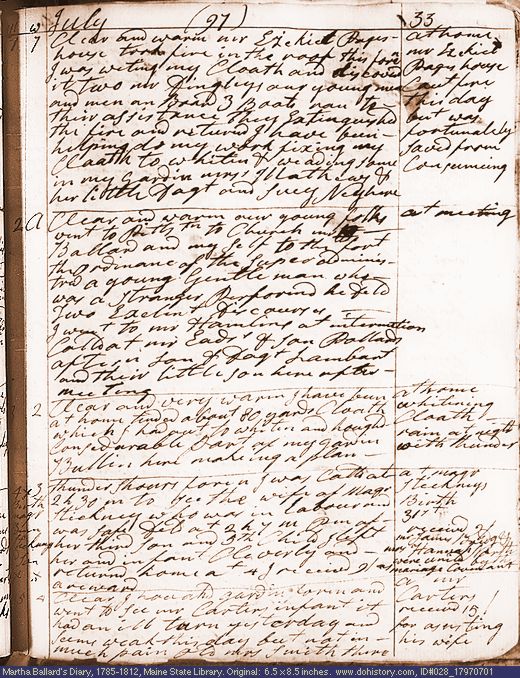 July (97) 33
1 7 Clear and warm mr Ezekiel Pages at home.
house took fire in the roof this foren mr Ezekiel
I was weting my Cloath and discoverd Pages house
it two mr Dingleys our young men Caut fire
and men on Board 3 Boats ran to this day
their assistance they Extinguished but was
the fire and returnd I have been fortunately
helping do my work fixing my saved from
Claath to whiten & weading some Consuming
in my gardin mrs Mathews &
her little Dagt and Suey
2 A Clear and warm our young folks at meeting
went to to Church mr
Ballard and my Self to the
the ordinance of the Super adminis-
tred a young Gentleman who
was a Stranger Performd he held
two Exelint Discourses
I went to mr Hamlins at intermition
Calld at mr Eads's & Son Ballards
after n Son & Dagt Lambart
and their little son here after
meeting
3 2 Clear and very warm I have been at home
at home tended about 80 yards Cloath whitening
which I had put to whitin and houghd Cloath
Considurable part of my gardin rain at night
Bullin here making a plan with thunder
4 3 thunder showrs foren I was Calld at at mr
2h 30 m to see the wife of Stickneys
Stickney who was in labour and Birth
was safe Deld at 2 h y m Pm of 31st
her third Son and 5th Child I left receivd
her and infant Cleverly and mr James
returnd home at 4 I receivd Hannah
as a reward were
5 4 Clear I hoed gardin foren and at mr
went to see mr Carters infant it Carters
had an ill turn yesterday and receivd
seems weak this day but not in for asisting
much pain old mrs Smith there his wife
Martha Ballard's Diary, 1785-1812, Maine State Library. Original: 6.5 x 8.5 inches. www.dohistory.com, ID#028_17970701